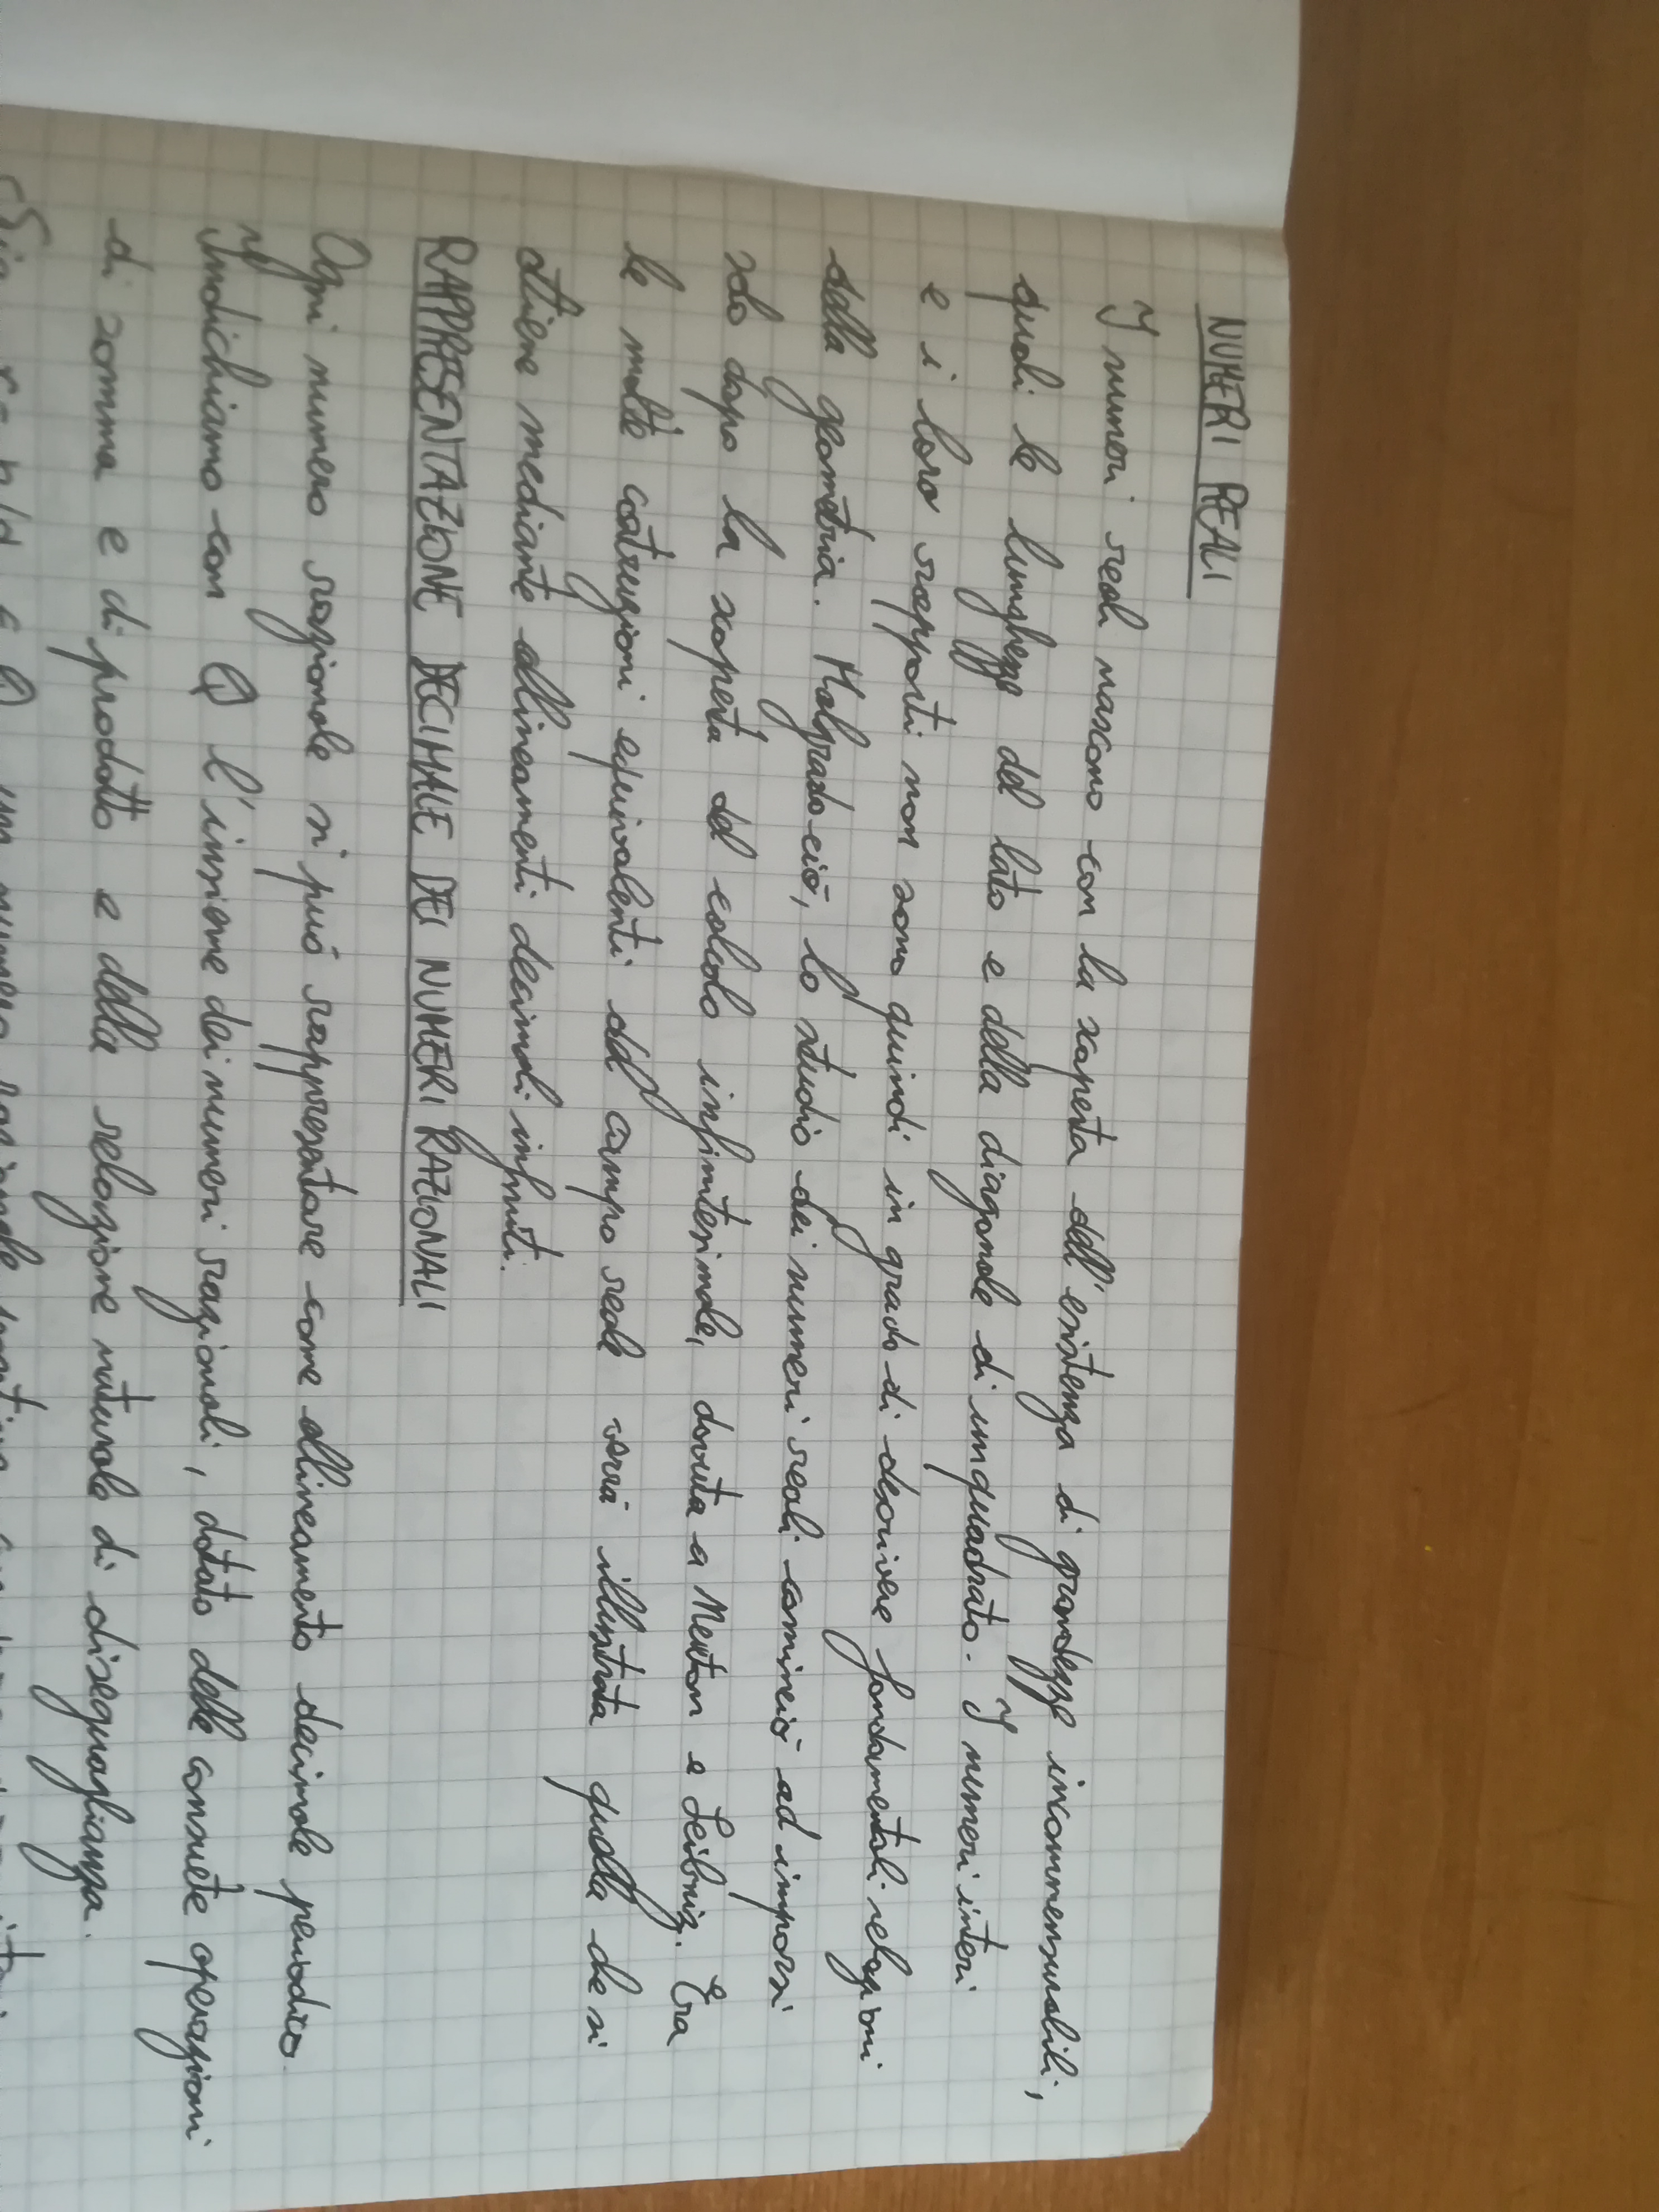 NUMERI REALI
I numeri reali nascono con la scoperta dell'esistenza di grandezze incommensurabili,
quali le lunghezze del lato e della diagonale di un quadrato. I numeri interi
e i loro rapporti non sono quindi in grado di descrivere fondamentali relazioni
della geometria. Malgrado ciò, lo studio dei numeri reali cominciò ad imporsi
solo dopo la scoperta del calcolo infinitesimale, dovuta a Newton e Leibniz. Tra
le molte costruzioni equivalenti del campo reale verrà illustrata quella che si
ottiene mediante allineamenti decimali infiniti.
RAPPRESENTAZIONE DECIMALE DEI NUMERI RAZIONALI
Ogni numero razionale si può rappresentare come allineamento decimale periodico.
Indichiamo con Q l'insieme dei numeri razionali, dotato delle consuete operazioni
di somma e di prodotto e della relazione naturale di diseguaglianza.